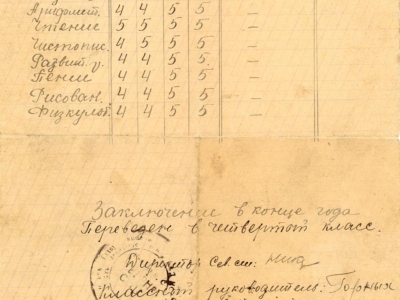 Арифмет. 4 4 5 5 —
Чтение 5 5 5 5 —
Чистопис. 4 4 5 5 —
Развит. р. 4 4 5 5 —
Пение 4 4 5 5 —
Рисован. 4 4 5 5 —
Физкульт. 4 4 5 5 —
Заключение в конце года
Переведен в четвертый класс.
Директор
Классный руководитель: Горных